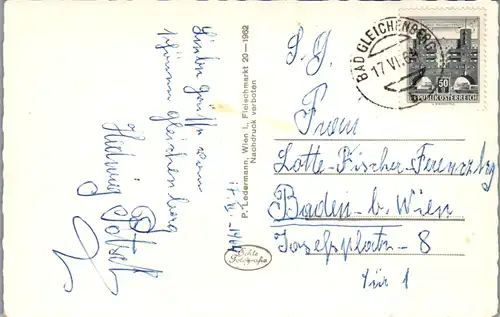 Liebe Grüße vom
schönen Gleichenberg
Hedwig
17. VI. 1964
P. Ledermann, Wien I., Fleischmarkt 20—1962
Nachdruck verboten
Echte
Fotografie
BAD GLEICHENBERG
17. VI. 64
50
REPUBLIK ÖSTERREICH
S. G.
Frau
Lotte-Fischer-Ferenczberg
Baden b. Wien
Josefsplatz - 8
Tür 1